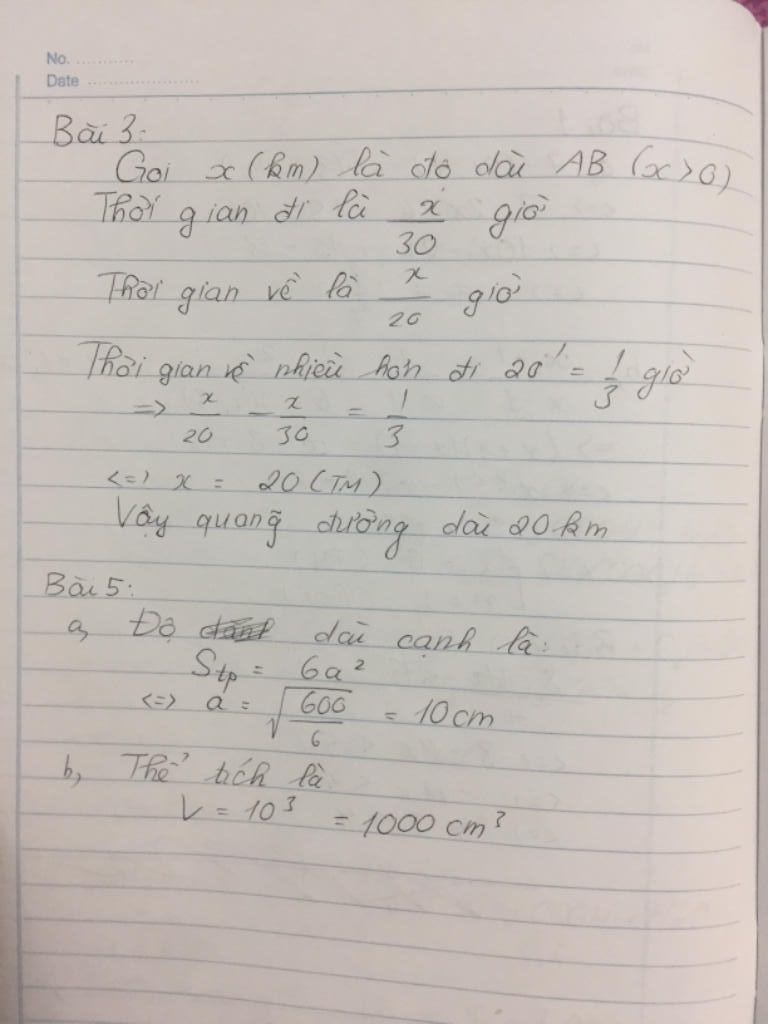 No. ...........
Date ......................
Bài 3:
Gọi x (km) là độ dài AB (x > 0)
Thời gian đi là x/30 giờ
Thời gian về là x/20 giờ
Thời gian về nhiều hơn đi 20' = 1/3 giờ
=> x/20 - x/30 = 1/3
<=> x = 20 (TM)
Vậy quãng đường dài 20 km
Bài 5:
a, Độ dài cạnh là:
Stp = 6a²
<=> a = √(600/6) = 10 cm
b, Thể tích là
V = 10³ = 1000 cm³